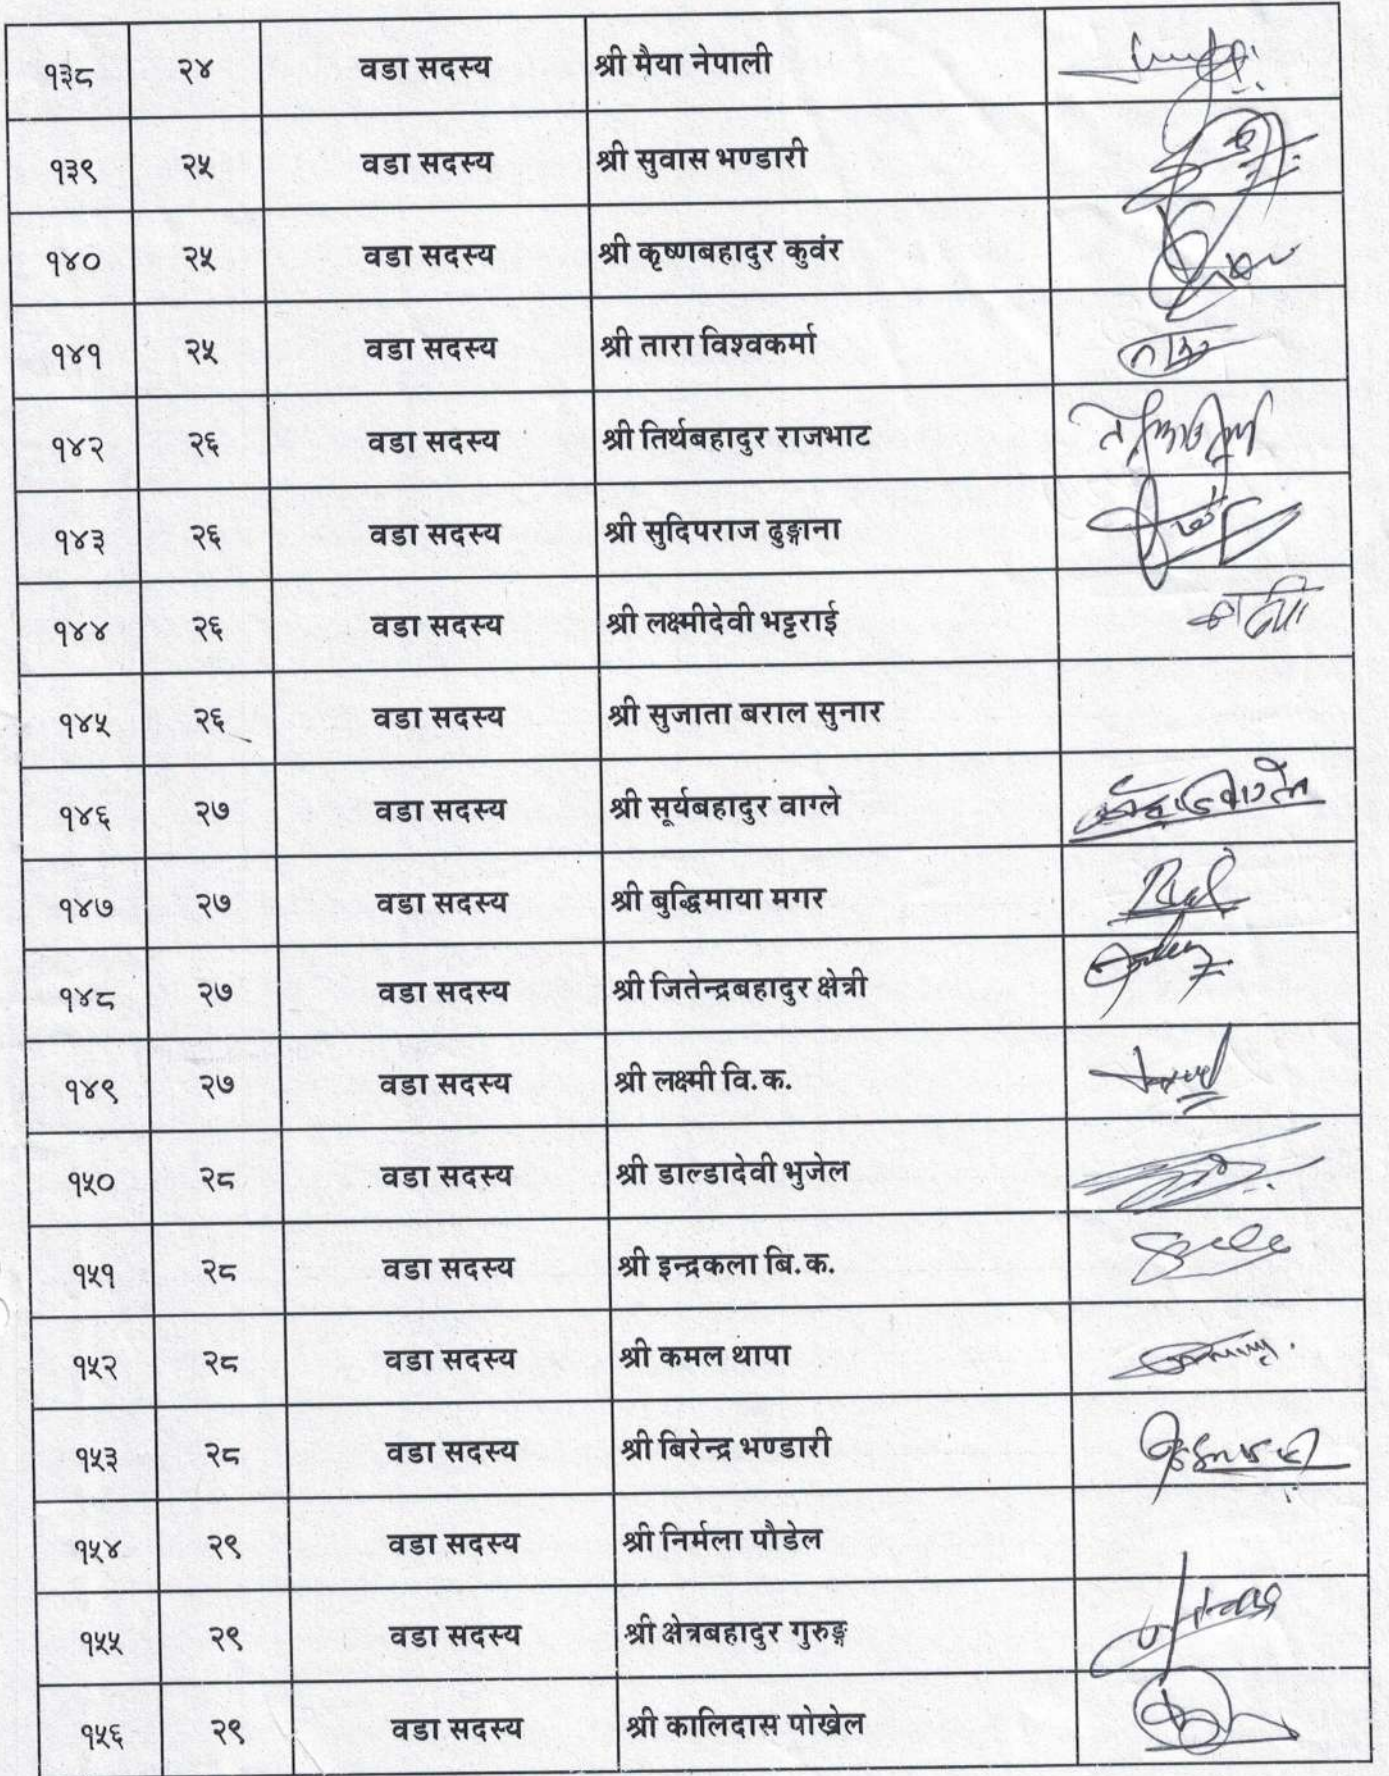 १३८ २४ वडा सदस्य श्री मैया नेपाली
१३९ २५ वडा सदस्य श्री सुवास भण्डारी
१४० २५ वडा सदस्य श्री कृष्णबहादुर कुवंर
१४१ २५ वडा सदस्य श्री तारा विश्वकर्मा
१४२ २६ वडा सदस्य श्री तिर्थबहादुर राजभाट
१४३ २६ वडा सदस्य श्री सुदिपराज ढुङ्गाना
१४४ २६ वडा सदस्य श्री लक्ष्मीदेवी भट्टराई
१४५ २६ वडा सदस्य श्री सुजाता बराल सुनार
१४६ २७ वडा सदस्य श्री सूर्यबहादुर वाग्ले
१४७ २७ वडा सदस्य श्री बुद्धिमाया मगर
१४८ २७ वडा सदस्य श्री जितेन्द्रबहादुर क्षेत्री
१४९ २७ वडा सदस्य श्री लक्ष्मी वि.क.
१५० २८ वडा सदस्य श्री डाल्डादेवी भुजेल
१५१ २८ वडा सदस्य श्री इन्द्रकला बि.क.
१५२ २८ वडा सदस्य श्री कमल थापा
१५३ २८ वडा सदस्य श्री बिरेन्द्र भण्डारी
१५४ २९ वडा सदस्य श्री निर्मला पौडेल
१५५ २९ वडा सदस्य श्री क्षेत्रबहादुर गुरुङ्ग
१५६ २९ वडा सदस्य श्री कालिदास पोख्रेल